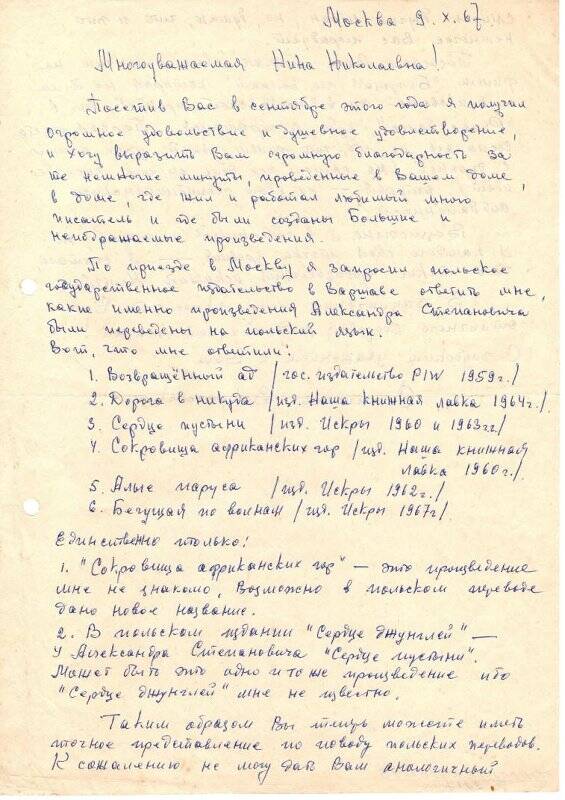 Москва 9.X.67
Многоуважаемая Нина Николаевна!
Посетив Вас в сентябре этого года я получил
огромное удовольствие и душевное удовлетворение,
и хочу выразить Вам огромную благодарность за
те немногие минуты, проведённые в Вашем доме,
в доме, где жил и работал любимый мною
писатель и где были созданы Большие и
неподражаемые произведения.
По приезде в Москву я запросил польское
государственное издательство в Варшаве ответить мне,
какие именно произведения Александра Степановича
были переведены на польский язык.
Вот, что мне ответили:
1. Возвращённый ад /гос. издательство PIW 1959г./
2. Дорога в никуда /изд. Наша книжная лавка 1964г./
3. Сердце пустыни /изд. Искры 1960 и 1963гг/
4. Сокровища африканских гор /изд. Наша книжная
лавка 1960г./
5. Алые паруса /изд. Искры 1962г./
6. Бегущая по волнам /изд. Искры 1967г/
Единственно только:
1. "Сокровища африканских гор" — это произведение
мне не знакомо, Возможно в польском переводе
дано новое название.
2. В польском издании "Сердце джунглей" —
у Александра Степановича "Сердце пустыни".
Может быть это одно и то же произведение ибо
"Сердце джунглей" мне не известно.
Таким образом Вы теперь можете иметь
точное представление по поводу польских переводов.
К сожалению не могу дать Вам аналогичный